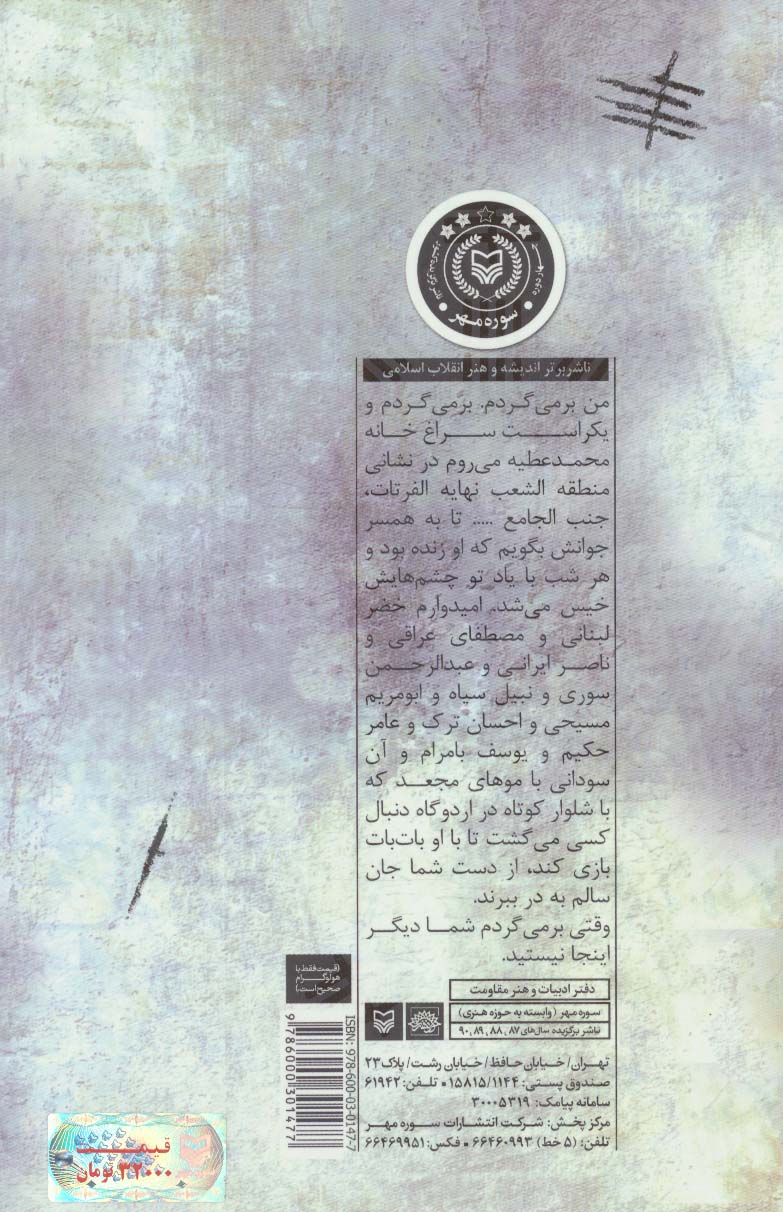 چهار دوره
ناشر برگزیده کشور
سوره مهر
ناشر برتر اندیشه و هنر انقلاب اسلامی
من برمی‌گردم. برمی‌گردم و
یکراست سراغ خانه
محمدعطیه می‌روم در نشانی
منطقه الشعب نهایه الفرتات،
جنب الجامع ..... تا به همسر
جوانش بگویم که او زنده بود و
هر شب با یاد تو چشم‌هایش
خیس می‌شد. امیدوارم خضر
لبنانی و مصطفای عراقی و
ناصر ایرانی و عبدالرحمن
سوری و نبیل سیاه و ابومریم
مسیحی و احسان ترک و عامر
حکیم و یوسف بامرام و آن
سودانی با موهای مجعد که
با شلوار کوتاه در اردوگاه دنبال
کسی می‌گشت تا با او بات‌بات
بازی کند، از دست شما جان
سالم به در ببرند.
وقتی برمی‌گردم شما دیگر
اینجا نیستید.
دفتر ادبیات و هنر مقاومت
سوره مهر (وابسته به حوزه هنری)
ناشر برگزیده سال‌های ۸۷، ۸۸، ۸۹، ۹۰
تهران/ خیابان حافظ/ خیابان رشت/ پلاک ۲۳
صندوق پستی: ۱۵۸۱۵/۱۱۴۴ • تلفن: ۶۱۹۴۲
سامانه پیامک: ۳۰۰۰۵۳۱۹
مرکز پخش: شرکت انتشارات سوره مهر
تلفن: (۵ خط) ۶۶۴۶۰۹۹۳ • فکس: ۶۶۴۶۹۹۵۱
(قیمت فقط با
هولوگرام
صحیح است.)
ISBN: 978-600-03-0147-7
9786000301477
قیمت
۳۲۰۰۰ تومان